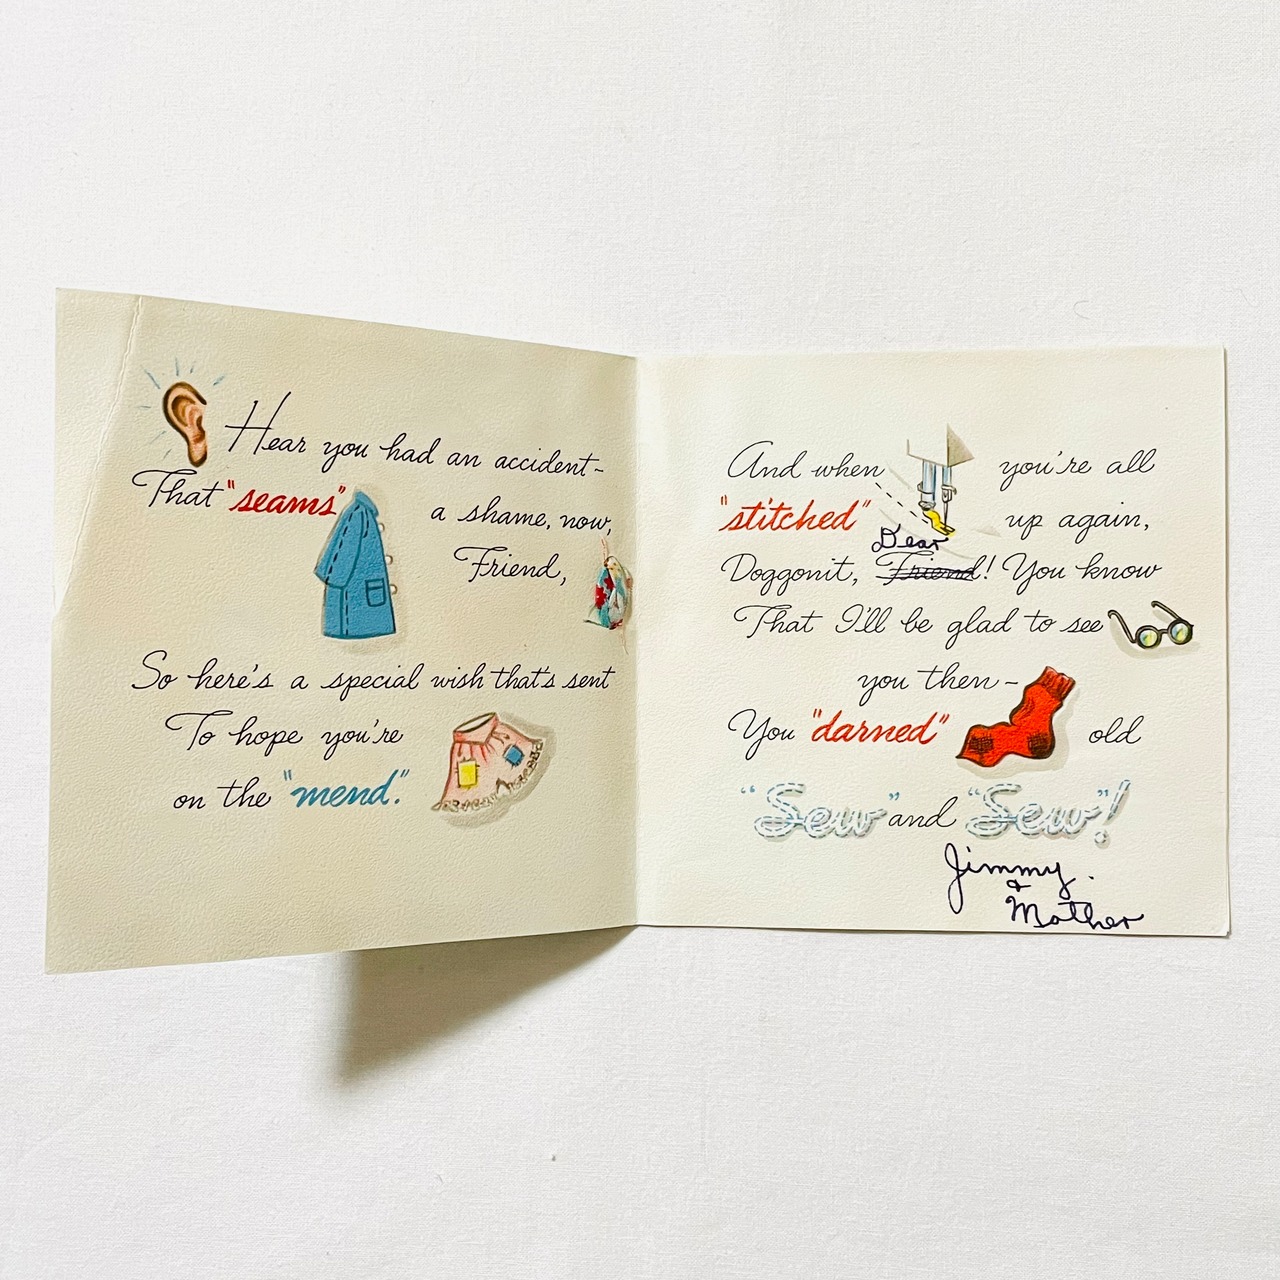 Hear you had an accident-
That "seams" a shame, now,
Friend,
So here's a special wish that's sent
To hope you're
on the "mend".
And when you're all
"stitched" up again,
Dear
Doggonit, Friend! You know
That I'll be glad to see
you then-
You "darned" old
"Sew" and "Sew"!
Jimmy.
&
Mother